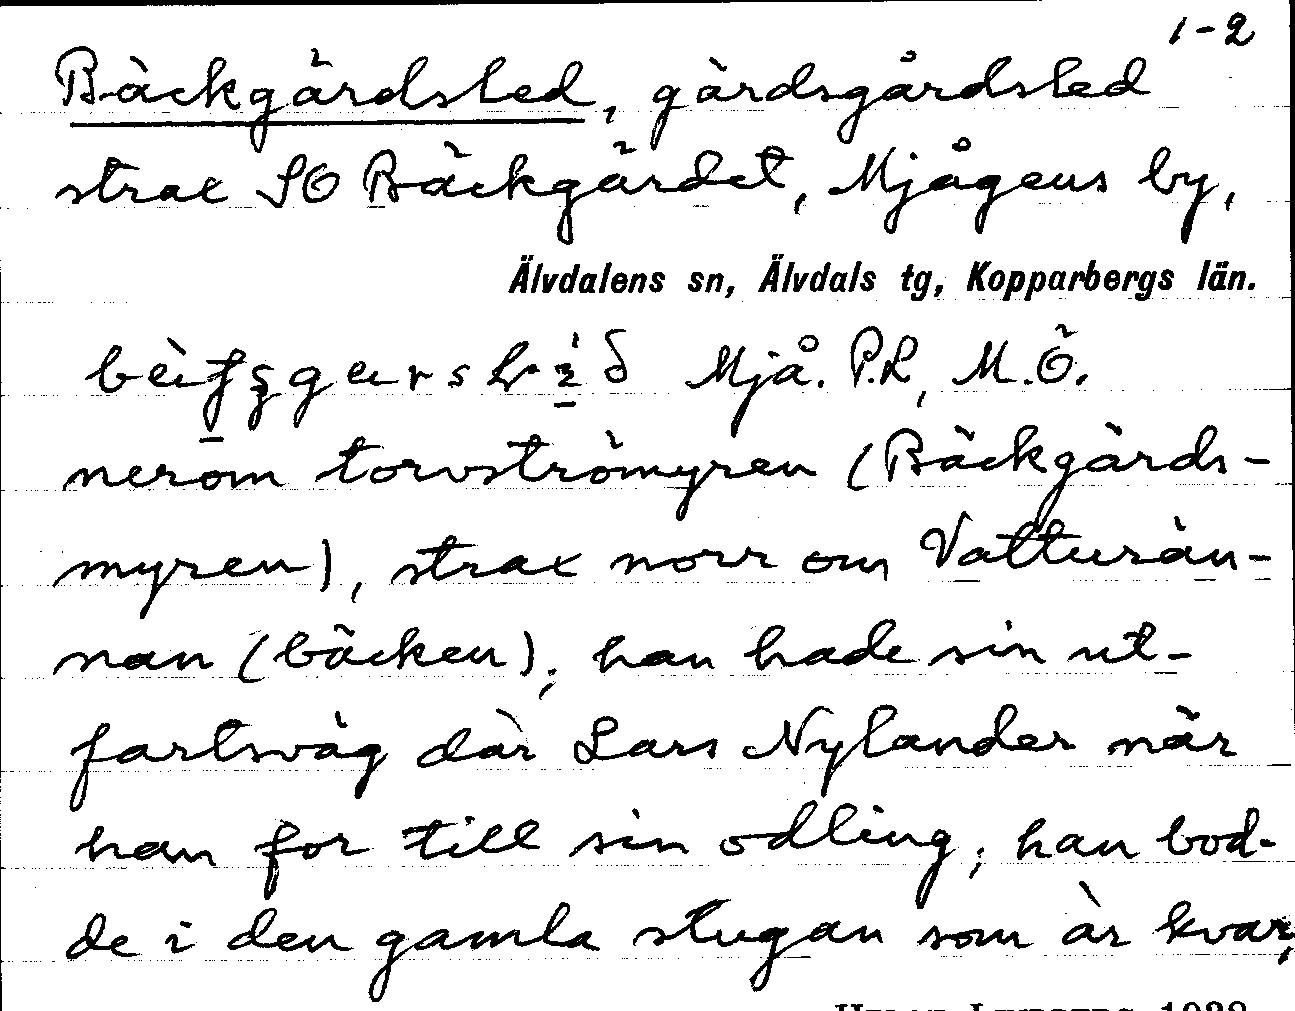 1-2
Bäckgärdsled, gärdsgårdsled
strax SO Bäckgärdet, Mjågens by,
Älvdalens sn, Älvdals tg, Kopparbergs län.
Mjå. P.L, M.Ö.
nerom torvströmyren (Bäckgärds-
myren), strax norr om Vatturän-
nan (bäcken); han hade sin ut-
fartsväg där Lars Nylander när
han for till sin odling; han bod-
de i den gamla stugan som är kvar,